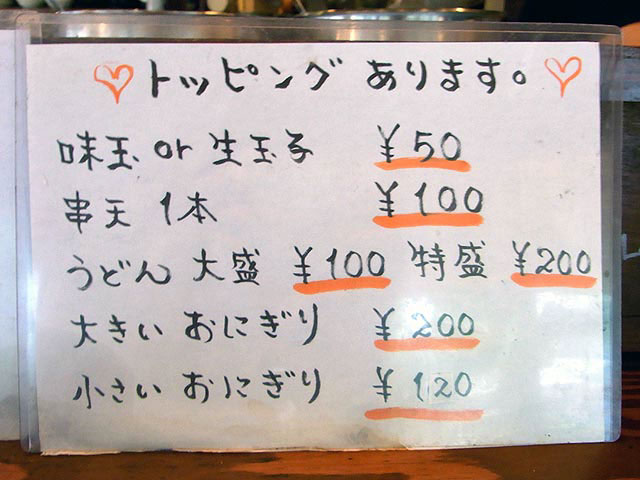 ♡トッピングあります。♡
味玉 or 生玉子 ¥50
串天 1本 ¥100
うどん 大盛 ¥100 特盛 ¥200
大きい おにぎり ¥200
小さい おにぎり ¥120